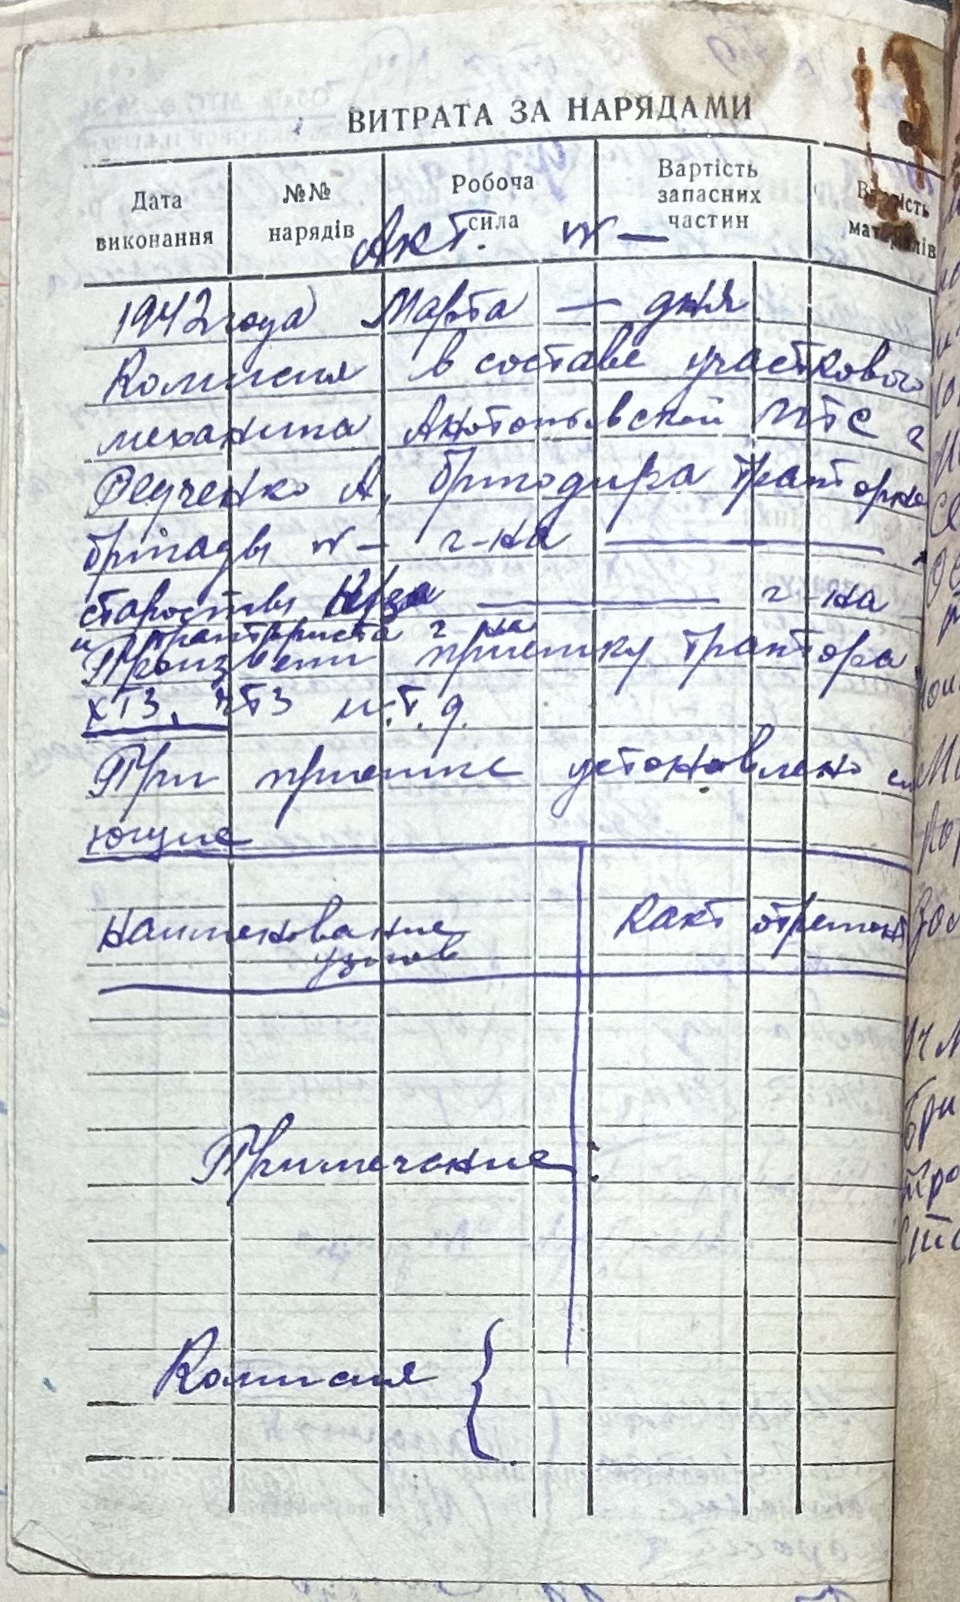 ВИТРАТА ЗА НАРЯДАМИ
Дата виконання
№№ нарядів
Робоча сила
Вартість запасних частин
Вартість матеріалів
Акт. № —
1942 года Марта — дня
Комиссия в составе участкового
механика Анотопьвской МТС г
бригадира тракторно
бригады № — г-на
старосты г-на
и тракториста г на
Произвели приемку трактора
ХТЗ, ЧТЗ и.т.д.
При приемке установлено сл
ющие
Наименование узлов
Какт отремонт
Примечание:
Комиссия {